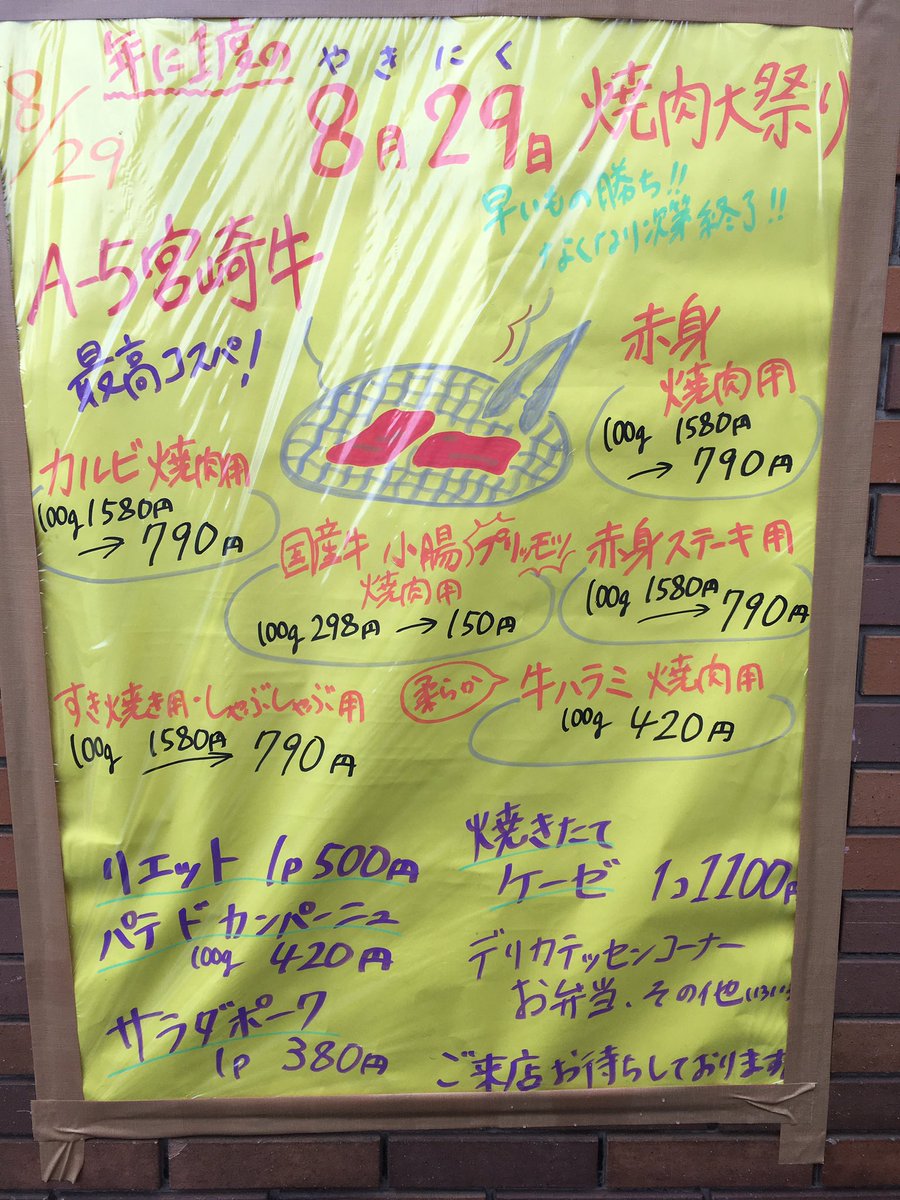 8/29
年に1度の
やきにく
8月29日 焼肉大祭り
早いもの勝ち!!
なくなり次第終了!!
A-5宮崎牛
最高コスパ!
赤身
焼肉用
100g 1580円
→ 790円
カルビ焼肉用
100g 1580円
→ 790円
国産牛 小腸 プリッモツ
焼肉用
100g 298円 → 150円
赤身ステーキ用
100g 1580円
→ 790円
すき焼き用・しゃぶしゃぶ用
100g 1580円 → 790円
柔らか 牛ハラミ 焼肉用
100g 420円
リエット 1p 500円
パテドカンパーニュ
100g 420円
サラダポーク
1p 380円
焼きたて
ケーゼ 1コ1100円
デリカテッセンコーナー
お弁当、その他いろいろ
ご来店お待ちしております